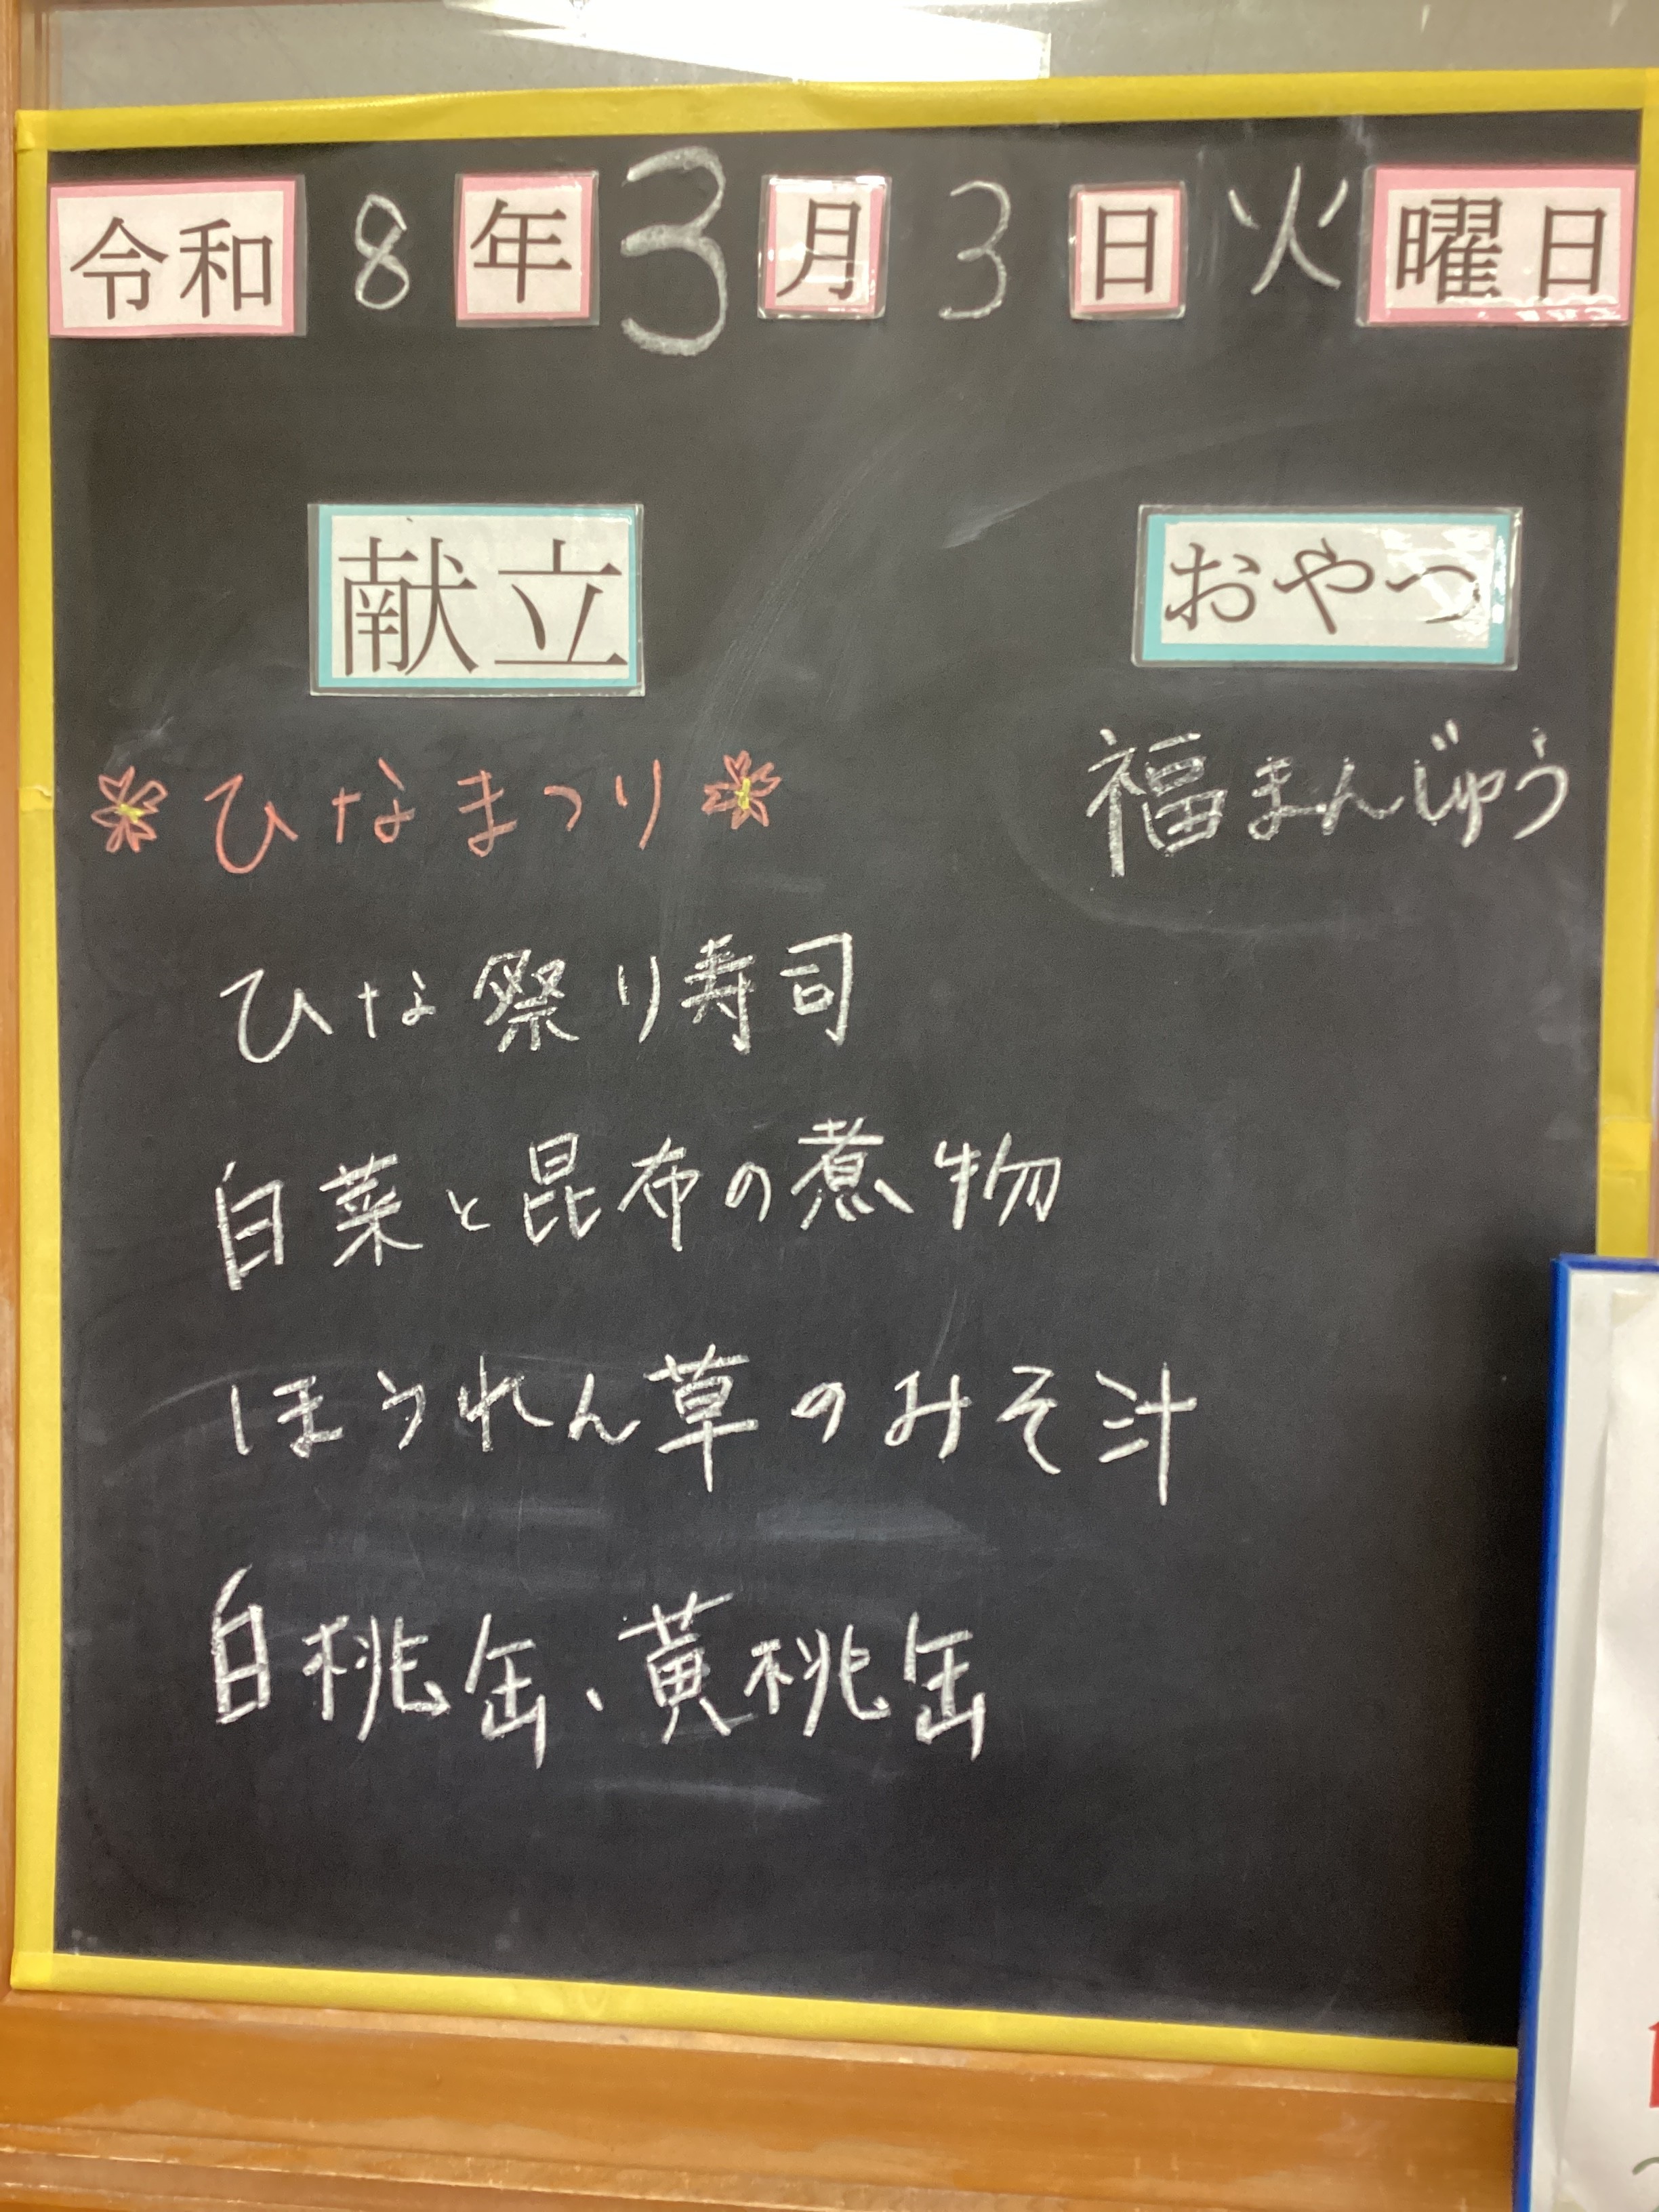 令和8年3月3日火曜日
献立
おやつ
ひなまつり
福まんじゅう
ひな祭り寿司
白菜と昆布の煮物
ほうれん草のみそ汁
白桃缶、黄桃缶